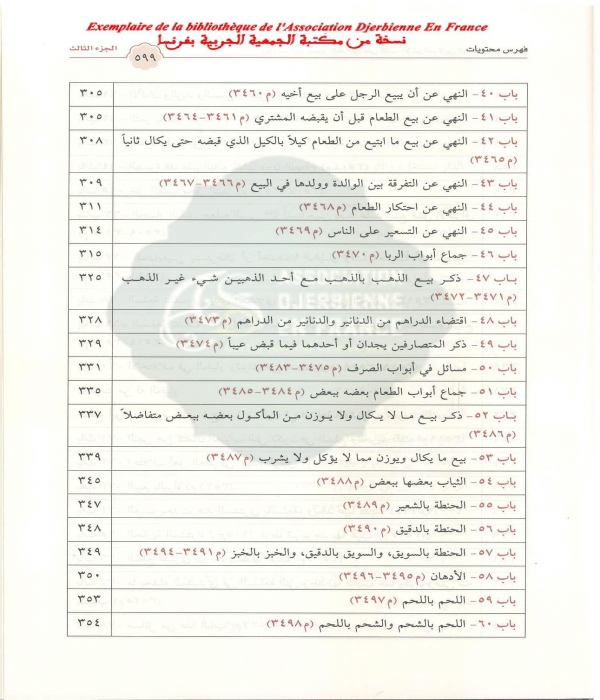 Exemplaire de la bibliothèque de l'Association Djerbienne En France
نسخة من مكتبة الجمعية الجربية بفرنسا
فهرس محتويات ٥٩٩ الجزء الثالث
باب ٤٠- النهي عن أن يبيع الرجل على بيع أخيه (م٣٤٦٠) ٣٠٥
باب ٤١- النهي عن بيع الطعام قبل أن يقبضه المشتري (م٣٤٦١-٣٤٦٤) ٣٠٥
باب ٤٢- النهي عن بيع ما ابتيع من الطعام كيلاً بالكيل الذي قبضه حتى يكال ثانياً ٣٠٨
(م٣٤٦٥)
باب ٤٣- النهي عن التفرقة بين الوالدة وولدها في البيع (م٣٤٦٦-٣٤٦٧) ٣٠٩
باب ٤٤- النهي عن احتكار الطعام (م٣٤٦٨) ٣١١
باب ٤٥- النهي عن التسعير على الناس (م٣٤٦٩) ٣١٤
باب ٤٦- جماع أبواب الربا (م٣٤٧٠) ٣١٥
باب ٤٧- ذكر بيع الذهب بالذهب مع أحد الذهبين شيء غير الذهب ٣٢٥
(م٣٤٧١-٣٤٧٢)
باب ٤٨- اقتضاء الدراهم من الدنانير والدنانير من الدراهم (م٣٤٧٣) ٣٢٨
باب ٤٩- ذكر المتصارفين يجدان أو أحدهما فيما قبض عيباً (م٣٤٧٤) ٣٢٩
باب ٥٠- مسائل في أبواب الصرف (م٣٤٧٥-٣٤٨٣) ٣٣١
باب ٥١- جماع أبواب الطعام بعضه ببعض (م٣٤٨٤-٣٤٨٥) ٣٣٥
باب ٥٢- ذكر بيع ما لا يكال ولا يوزن من المأكول بعضه ببعض متفاضلاً ٣٣٧
(م٣٤٨٦)
باب ٥٣- بيع ما يكال ويوزن مما لا يؤكل ولا يشرب (م٣٤٨٧) ٣٣٩
باب ٥٤- الثياب بعضها ببعض (م٣٤٨٨) ٣٤٥
باب ٥٥- الحنطة بالشعير (م٣٤٨٩) ٣٤٧
باب ٥٦- الحنطة بالدقيق (م٣٤٩٠) ٣٤٨
باب ٥٧- الحنطة بالسويق، والسويق بالدقيق، والخبز بالخبز (م٣٤٩١-٣٤٩٤) ٣٤٩
باب ٥٨- الأدهان (م٣٤٩٥-٣٤٩٦) ٣٥٠
باب ٥٩- اللحم باللحم (م٣٤٩٧) ٣٥٣
باب ٦٠- اللحم بالشحم والشحم باللحم (م٣٤٩٨) ٣٥٤
ASSOCIATION
DJERBIENNE
EN FRANCE